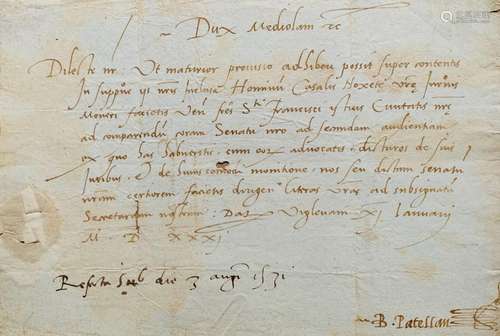 Dux Mediolani etc
Dilecte nr: Ut maturior provisio adhiberi possit super contentis
In supplne his nris inclusa Hominū Casalis Noxete vre Iuronis
Moneri facietis Ven. fres Sti Francisci istius Civitatis nre
ad comparendū coram Senatu nro ad secundam audientiam
ex quo has habueritis, cum eor advocatis, dicturos de suis
Iuribus, E de huiuscemodi monitione, nos seu dictum senatū
nrum certiorem facietis dirigen literas vras ad subsignatū
Secretarium nostrum: Dat Viglevani XI Ianuarij
M D XXXI
die 3 1531
B. Patellan